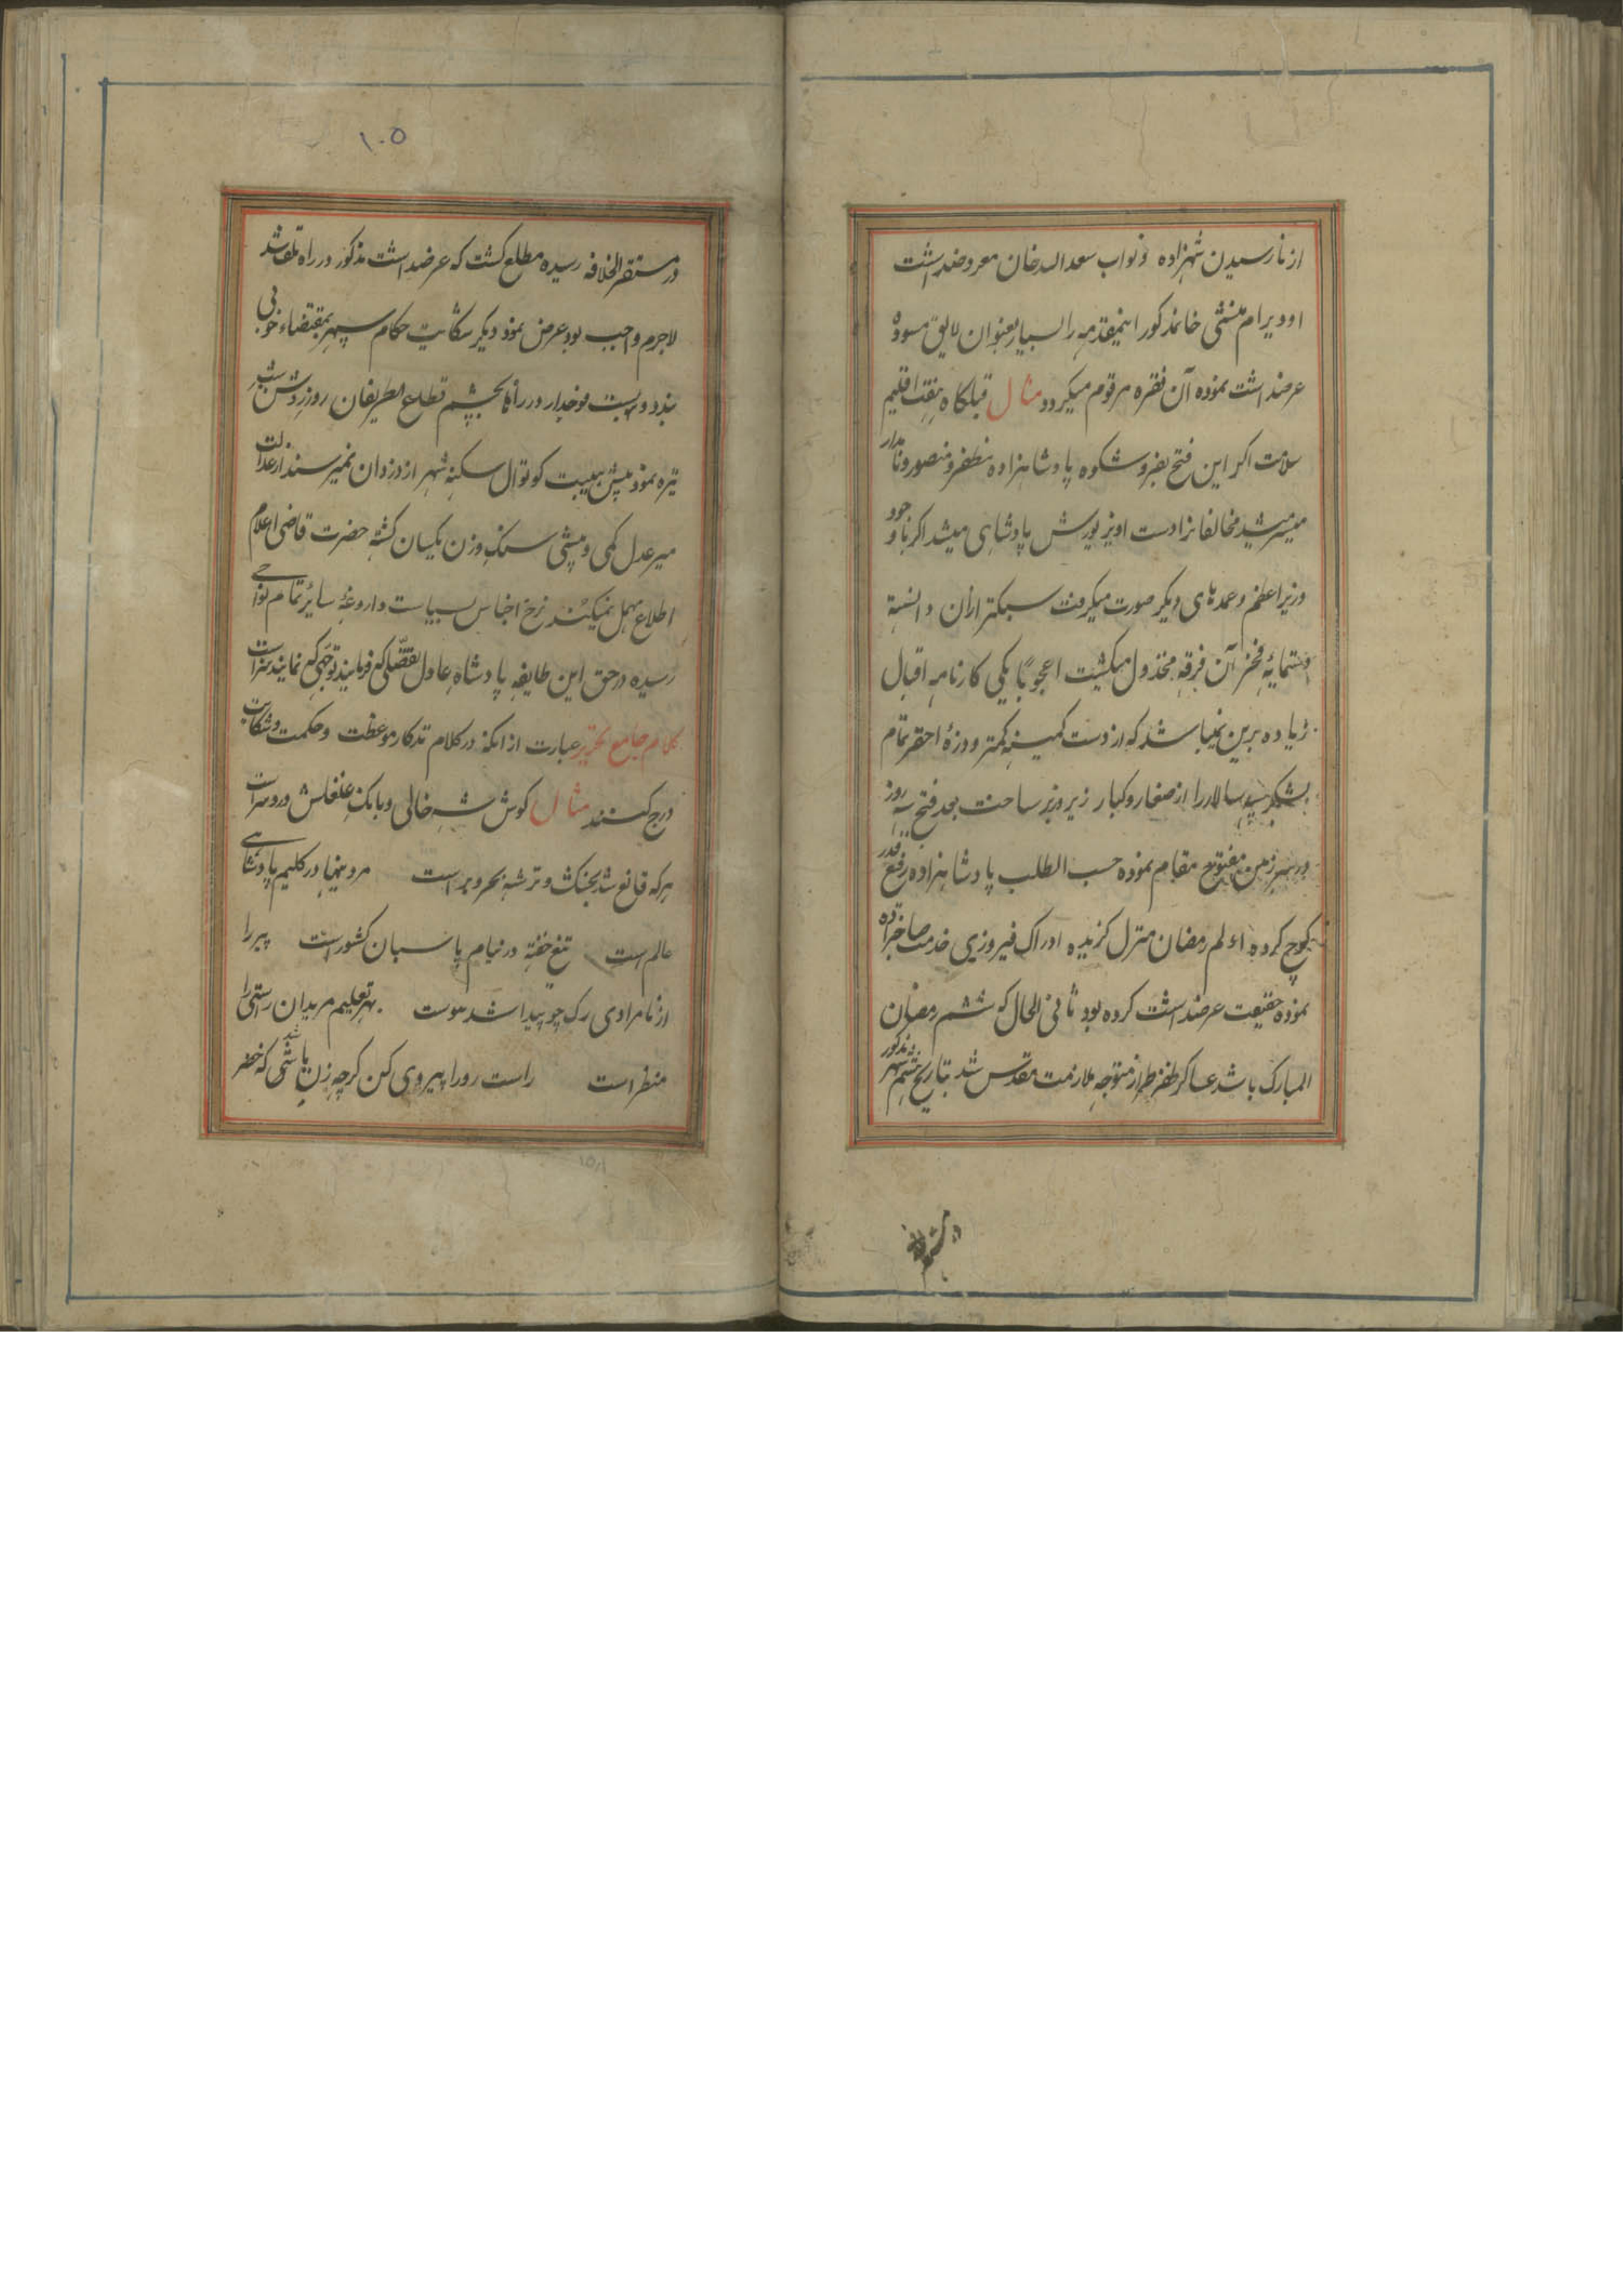 از نارسیدن شهزاده و نواب سعد الله خان معروضداشت
اودیرام منشی خانمذکور اینمقدمه را بسیار بعنوان لایق مسوده
عرضداشت نموده آن فقره مرقوم میکردد مثال قبلکاه هفت اقلیم
سلامت اکر این فتح بفر و شکوه پادشاهزاده مظفر و منصور و نامدار
میسر میشد مخالفانرا دست اویز یورش پادشاهی میشد اکر با وجود
وزیر اعظم و عمدهای دیکر صورت میکرفت سبکتر ازان دانسته
دستمایه فخر آن فرقه مخذول میکشت اعجوبکی کارنامه اقبال
زیاده برین نمیباشد که از دست کمینه کمتر و ذره احقر تمام
لشکر سپه سالار را از صغار و کبار زیر و زبر ساخت بعد فتح سه روز
در سرزمین مفتوح مقام نموده حسب الطلب پادشاهزاده رفیع قدر
کوچ کرده اولم رمضان منزل کزیده ادراک فیروزی خدمت صاحبزاده
نموده حقیقت عرضداشت کرده بود ثانی الحال که ششم رمضان
المبارک باشد عساکر ظفر طراز متوجه ملازمت مقدس شد بتاریخ شهر مذکور
در مستقر
۱۰۵
در مستقر الخلافه رسیده مطلع کشت که عرضداشت مذکور در راه تلف شد
لاجرم واجب بود عرض نمود دیکر شکایت حکام سپهر بمقتضاء خوبی
فوجدار در راهها بچشم قطاع الطریقان روز روشن شب
تیره نمود پیش هیبت کوتوال سکنه شهر از دزدان نمیرسند از عدالت
میر عدل کمی و بیشی سنک وزن یکسان کشته حضرت قاضی اعلام
اطلاع مهمل نمیکنند نرخ اجناس بسیاست داروغه سایر تمام نواحی
رسیده در حق این طایفه پادشاه عادل تفضلی که فرمایند توجهی که نمایند سزاست
کلام جامع تحریر عبارت از انکه در کلام تذکار موعظت و حکمت و شکایت
درج کنند مثال کوس شه خالی و بانک غلغلش درد سر است
هرکه قانع شد بخشک و تر شه بحر و بر است مرد پنهان در کلیم پادشاهی
عالم است تیغ خفته در نیام پاسبان کشور است پیر را
از نامرادی رک چو پیدا شد موست بهر تعلیم مریدان راستی را
منظر است راست رو را پیروی کن کرچه زن باشد که خضر